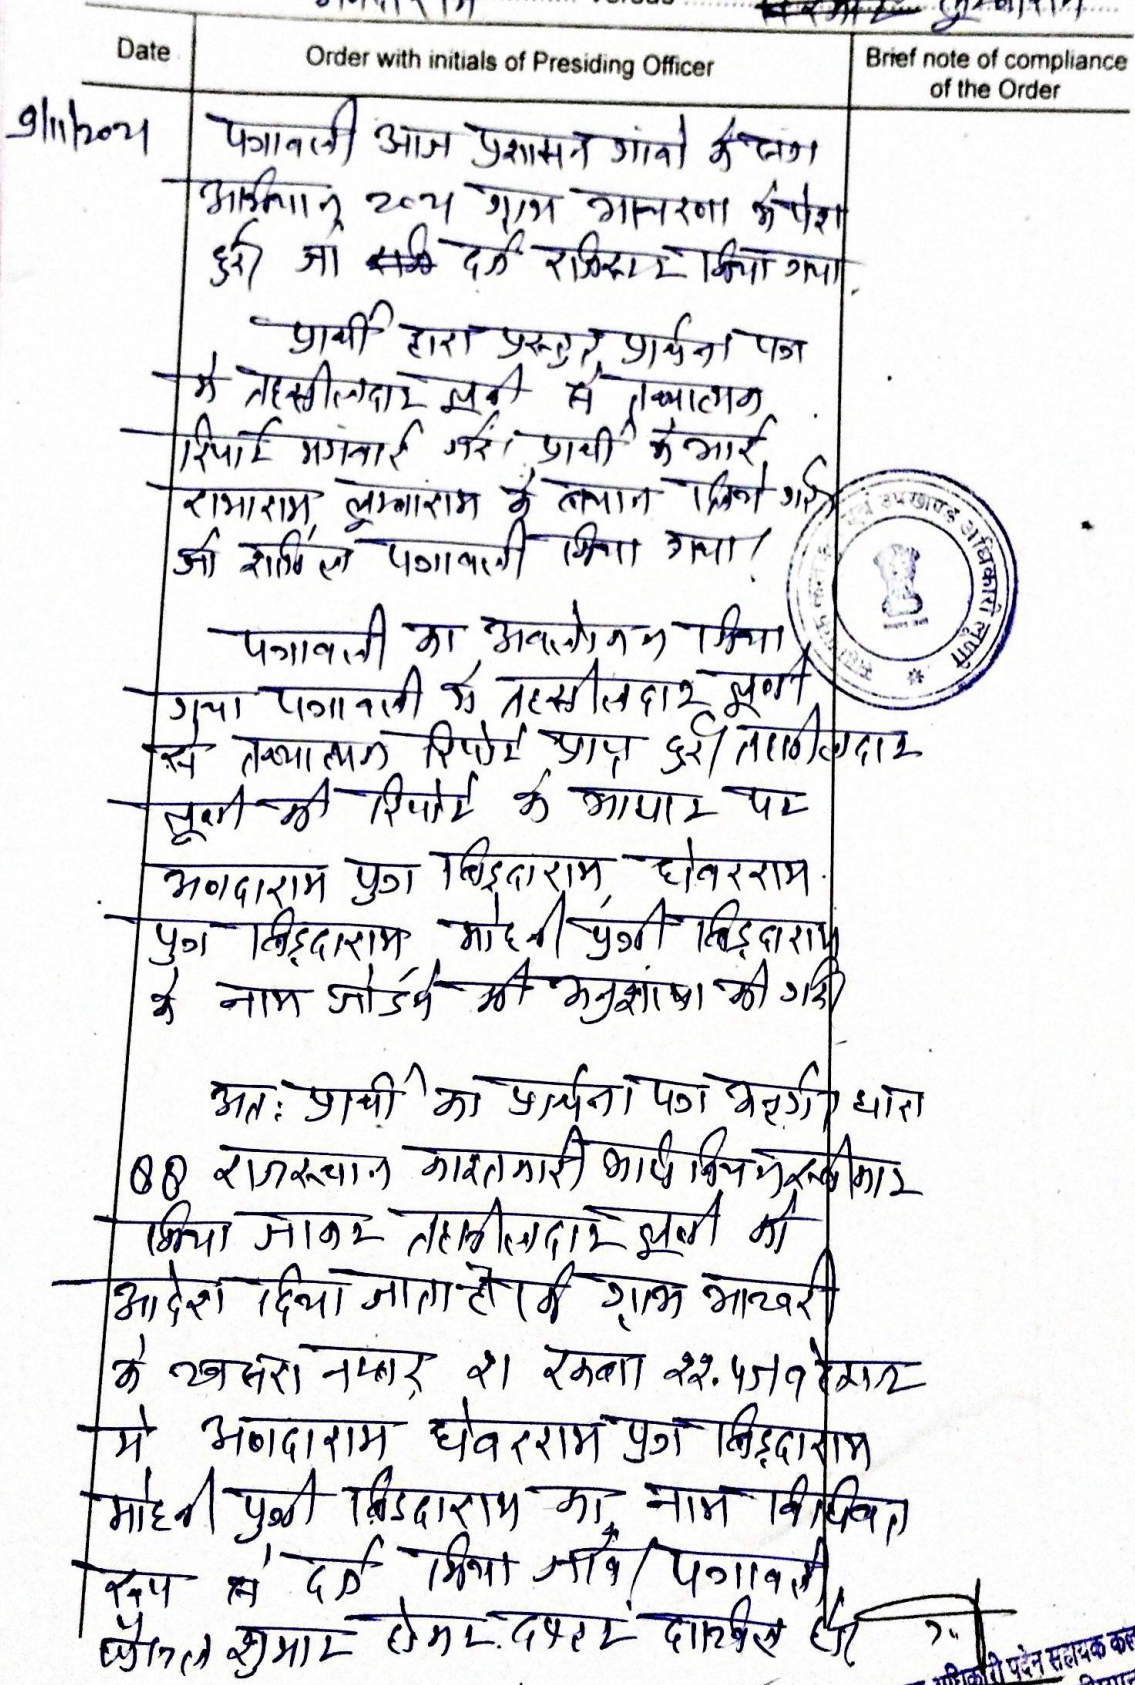 Versus
Date
Order with initials of Presiding Officer
Brief note of compliance
of the Order
पत्रावली आज प्रशासन गांवो के संग
अभियान ग्राम में पेश
हुई जो दर्ज रजिस्टर किया गया.
प्रार्थी द्वारा प्रस्तुत प्रार्थना पत्र
मे तहसीलदार लूणी से तथ्यात्मक
रिपोर्ट मंगवाई गई। प्रार्थी के भाई
रामाराम, लूम्बाराम के बयान लिये गये
जो शामिल पत्रावली किया गया।
पत्रावली का अवलोकन किया
गया पत्रावली में तहसीलदार लूणी
से तथ्यात्मक रिपोर्ट प्राप्त हुई। तहसीलदार
लूणी की रिपोर्ट के आधार पर
अणदाराम पुत्र बिड़दाराम, घेवरराम
पुत्र बिड़दाराम, मोहनी पुत्री बिड़दाराम
के नाम जोडने की अनुशंषा की गई
अतः प्रार्थी का प्रार्थना पत्र अन्तर्गत धारा
88 राजस्थान काश्तकारी अधिनियम स्वीकार
किया जाकर तहसीलदार लूणी को
आदेश दिया जाता है कि ग्राम
के खसरा नम्बर रकबा
मे अणदाराम, घेवरराम पुत्र बिड़दाराम
मोहनी पुत्री बिड़दाराम का नाम विधिवत
रूप से दर्ज किया जावे। पत्रावली
फैसल शुमार होकर दफ्तर दाखिल हो।
एवं उपखण्ड अधिकारी लूणी
अधिकारी पदेन सहायक